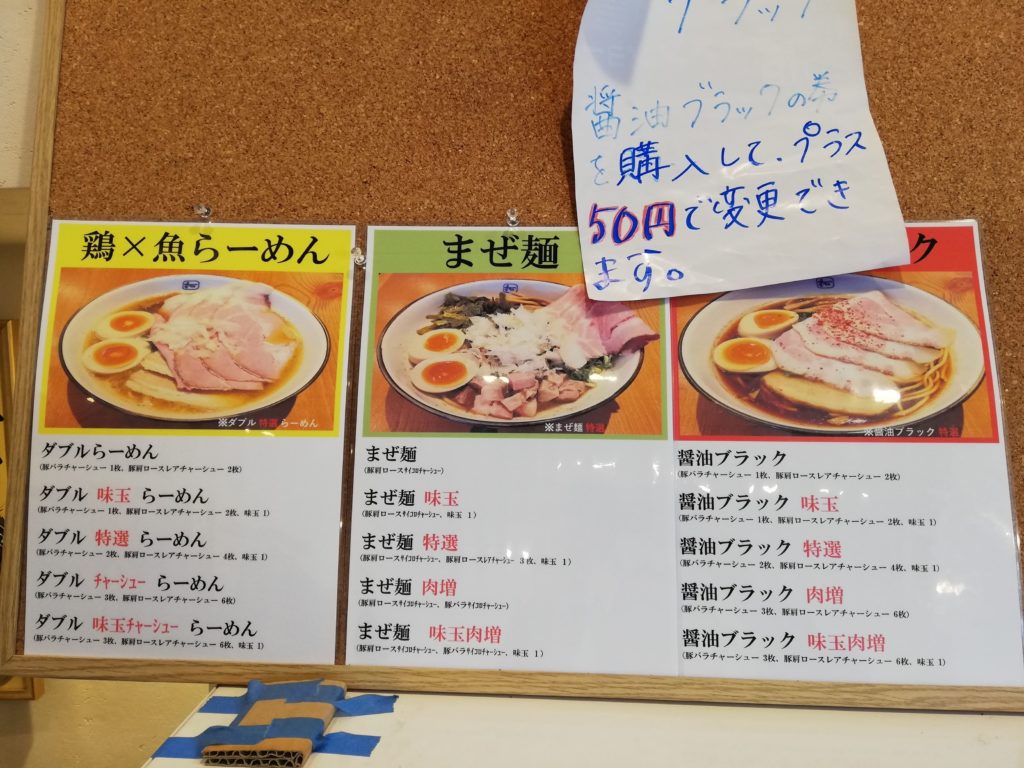 醤油ブラックの券
を購入して、プラス
50円で変更でき
ます。
鶏×魚らーめん
※ダブル 特選 らーめん
ダブルらーめん
(豚バラチャーシュー 1枚、豚肩ロースレアチャーシュー 2枚)
ダブル 味玉 らーめん
(豚バラチャーシュー 1枚、豚肩ロースレアチャーシュー 2枚、味玉 1)
ダブル 特選 らーめん
(豚バラチャーシュー 2枚、豚肩ロースレアチャーシュー 4枚、味玉 1)
ダブル チャーシュー らーめん
(豚バラチャーシュー 3枚、豚肩ロースレアチャーシュー 6枚)
ダブル 味玉チャーシュー らーめん
(豚バラチャーシュー 3枚、豚肩ロースレアチャーシュー 6枚、味玉 1)
まぜ麺
※まぜ麺 特選
まぜ麺
(豚肩ロースサイコロチャーシュー)
まぜ麺 味玉
(豚肩ロースサイコロチャーシュー、味玉 1)
まぜ麺 特選
(豚肩ロースサイコロチャーシュー、豚肩ロースレアチャーシュー 3枚、味玉 1)
まぜ麺 肉増
(豚肩ロースサイコロチャーシュー、豚バラサイコロチャーシュー)
まぜ麺 味玉肉増
(豚肩ロースサイコロチャーシュー、豚バラサイコロチャーシュー、味玉 1)
ク
※醤油ブラック 特選
醤油ブラック
(豚バラチャーシュー 1枚、豚肩ロースレアチャーシュー 2枚)
醤油ブラック 味玉
(豚バラチャーシュー 1枚、豚肩ロースレアチャーシュー 2枚、味玉 1)
醤油ブラック 特選
(豚バラチャーシュー 2枚、豚肩ロースレアチャーシュー 4枚、味玉 1)
醤油ブラック 肉増
(豚バラチャーシュー 3枚、豚肩ロースレアチャーシュー 6枚)
醤油ブラック 味玉肉増
(豚バラチャーシュー 3枚、豚肩ロースレアチャーシュー 6枚、味玉 1)